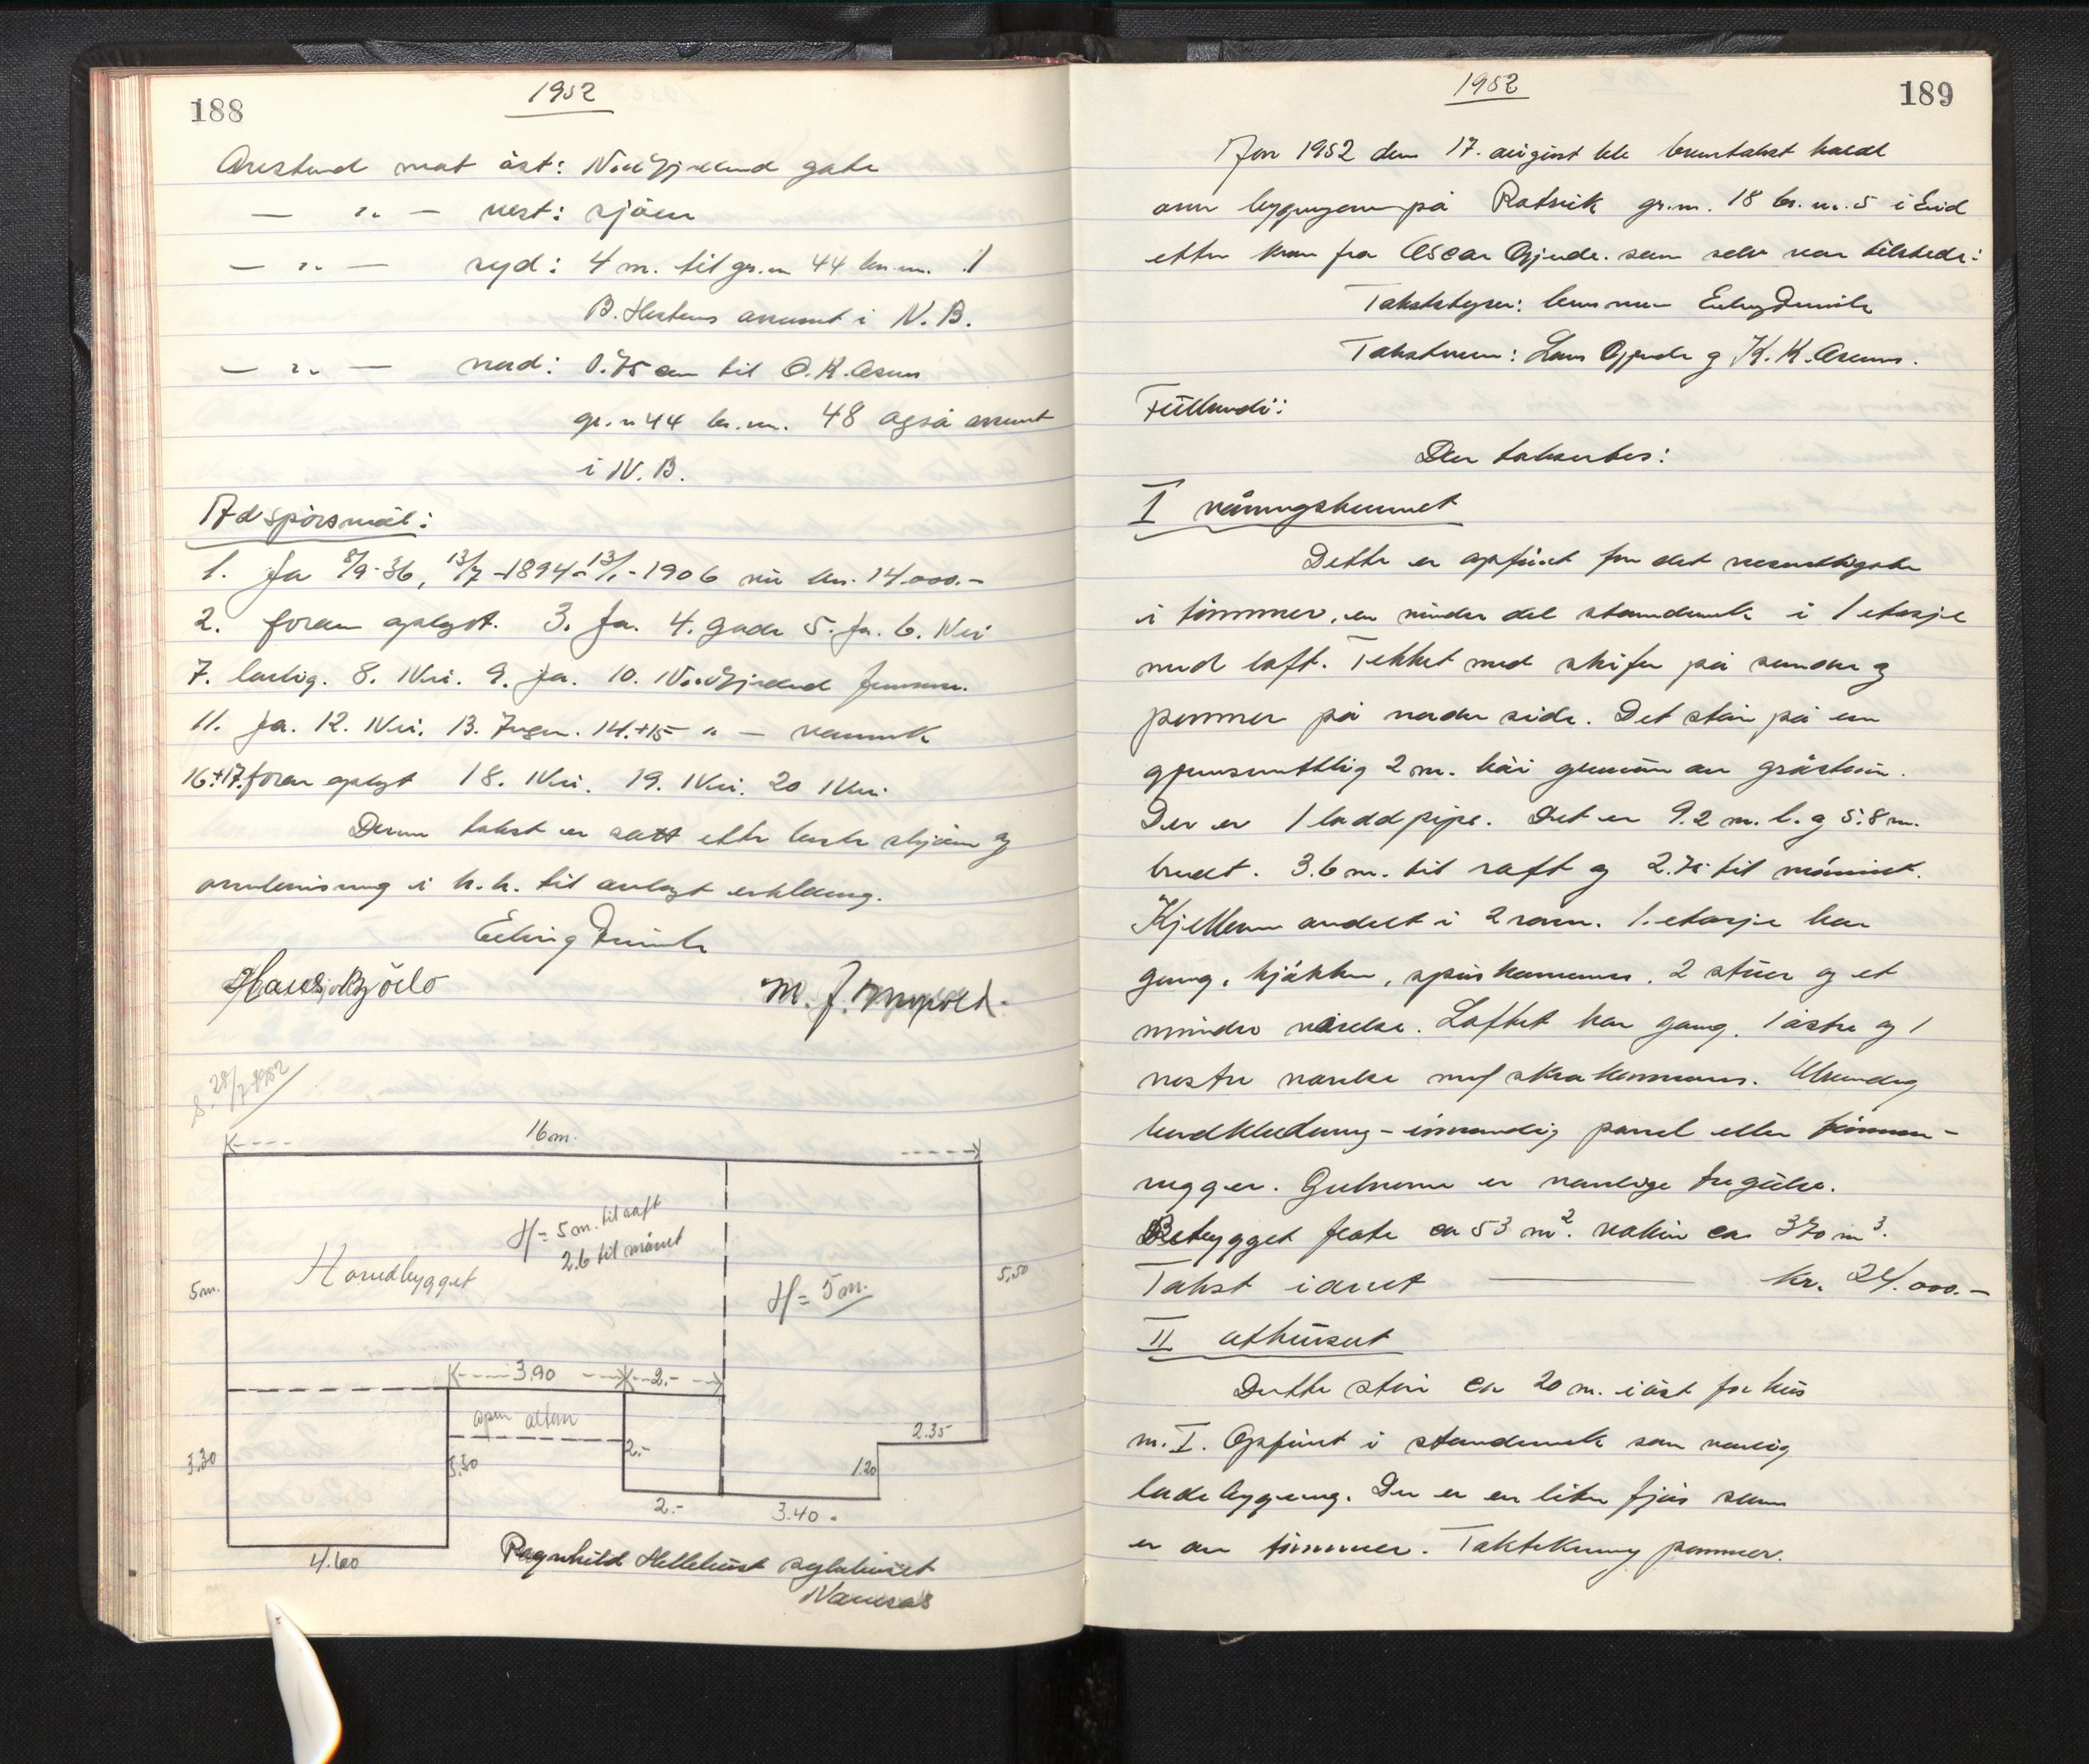 188
1952
Avstand mot øst: Nordfjordeid gate
— " — vest: sjøen
— " — syd: 4 m. til gr.n 44 br.nr. 1
B. Hestens assurert i N. B.
— " — nord: 0.75 cm til O. K. Aaren
gr.n 44 br.nr. 48 også assurert
i N. B.
Ad spørsmål:
1. Ja 8/9-36, 13/7-1894-13/1-1906 nu kr. 14.000.-
2. foran oplyst. 3. Ja. 4. gode 5. Ja. 6. Nei
7. bærlig. 8. Nei. 9. Ja. 10. Nordfjordeid
11. Ja. 12. Nei. 13. Ingen. 14.+15 " —
16.+17. foran oplyst 18. Nei. 19. Nei. 20 Nei
Denne takst er satt etter beste skjøn og
overbevisning i h.h. til avlagt erklæring.
Erling
Hans
M. J.
28/7-1952
16m.
Hovedbygget
H = 5 m. til raft
2.6 til mønet
H = 5 m.
5m.
5,50
3.90
2.-
open altan
3.30
3.30
2.-
2.35
1.20
2.-
3.40
4.60
Ragnhild
189
1952
Jon 1952 den 17. august ble branntakst holdt
over bygningene på Rotevik gr.nr. 18 br.nr. 5 i Eid
etter krav fra Oscar Gjerde som selv var tilstede:
Takststyrer: lensmann Erling
Takstmenn: Lars Gjerde og K. K. Aaren.
Fullmakt:
Der takseertes:
I våningshuset
Dette er oppført for det vesentligste
i tømmer, en mindre del standverk i 1 etasje
med loft. Tekket med skifer på søndre og
panner på nordre side. Det står på en
gjennomsnittlig 2 m. høi grunnmur av gråstein.
Der er 1 ladd pipe. Det er 9.2 m. l. og 5.8 m.
bredt. 3.6 m. til raft og 2.75 til mønnet.
Kjelleren avdelt i 2 rom. 1. etasje har
gang, kjøkken, spiskammers, 2 stuer og et
mindre værelse. Loftet har gang, 1 østre og 1
vestre værelse m/ skrakammers. Utvendig
bordkledning - innvendig panel eller tømmer-
vegger. Gulvene er vanlige tregulv.
Bebygget flate ca 53 m². volum ca 370 m³.
Takst i alt ——— kr. 24.000.-
II uthuset
Dette står ca 20 m. i øst for hus
nr. I. Oppført i standverk som vanlig
ladebygning. Der er en liten fjøs som
er av tømmer. Taktekning panner.